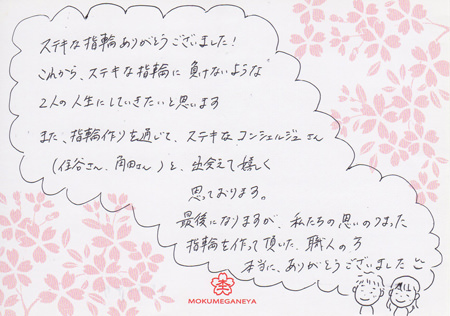 ステキな指輪ありがとうございました!
これから、ステキな指輪に負けないような
2人の人生にしていきたいと思います
また、指輪作りを通じて、ステキなコンシェルジュさん
(住谷さん、角田さん)と、出会えて嬉しく
思っております。
最後になりますが、私たちの思いのつまった
指輪を作って頂いた、職人の方
本当に、ありがとうございました
MOKUMEGANEYA